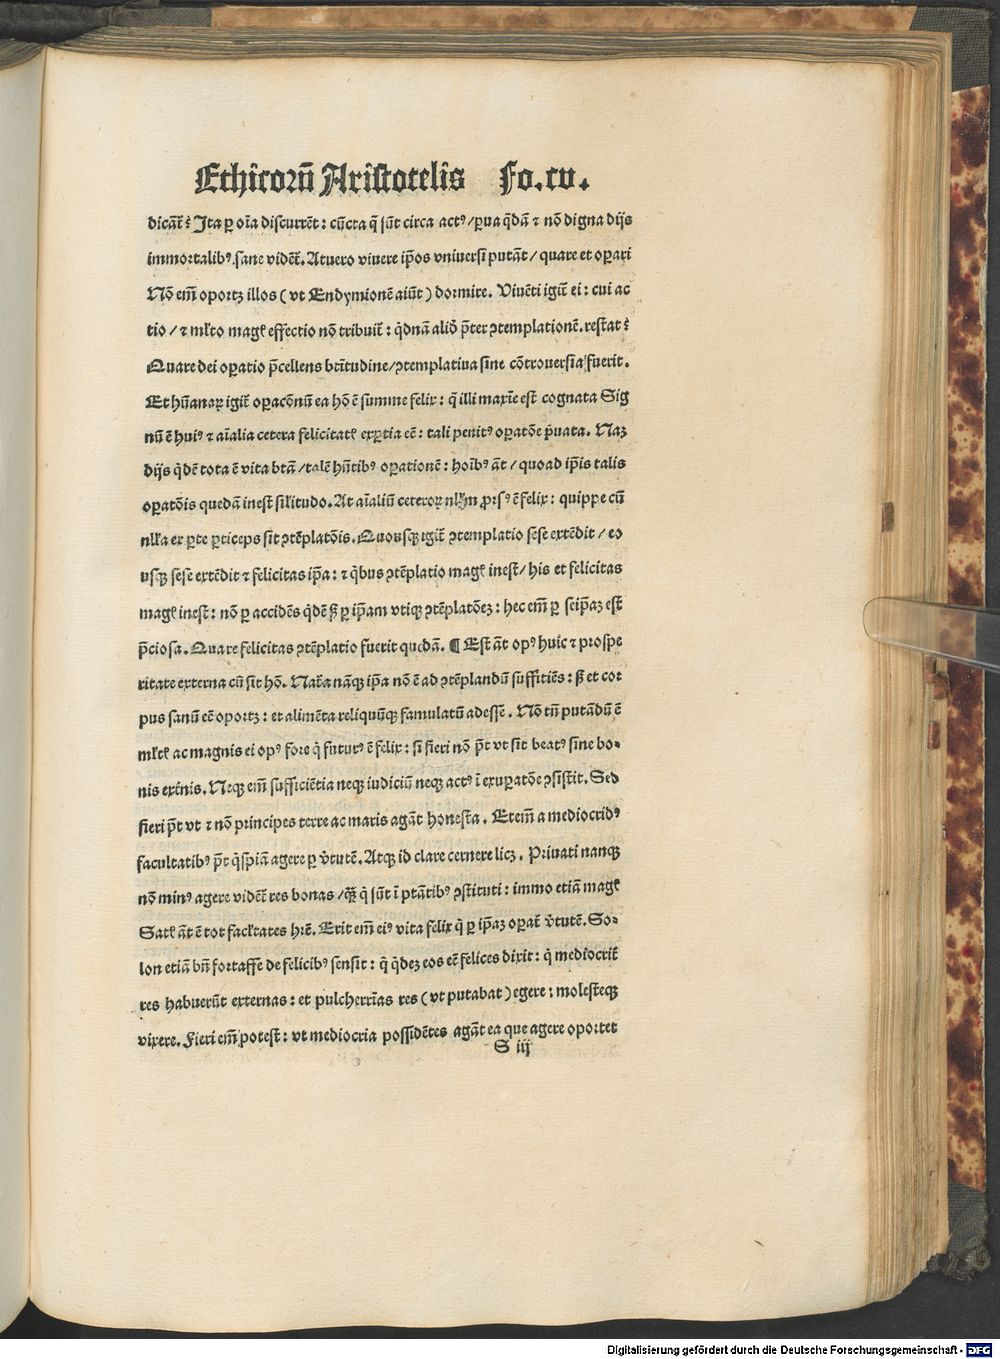 Ethicorū Aristotelis Fo.cv.
dicāt᷑? Ita ꝑ oīa discurrēt: cūcta q̄ sūt circa actꝰ/ parua q̄dā ⁊ nō digna dijs
immortalibꝰ sane vidēt᷑. Atuero viuere ip̄os vniuersi putāt/ quare et oꝑari
Nō em̄ oportꝫ illos (vt Endymionē aiūt) dormire. Viuēti igit᷑ ei: cui ac
tio/ ⁊ ml̄to magꝭ effectio nō tribuit᷑: q̄dnā aliḋ p̄ter ꝯtemplationē restat?
Quare dei oꝑatio p̄cellens btītudine/ ꝯtemplatiua sine cōtrouersia fuerit.
Et hūanaꝝ igit᷑ oꝑacōnū ea hō ē summe felix: q̄ illi maxīe est cognata Sig
nū ē huiꝰ ⁊ aīalia cetera felicitatꝭ exꝑtia eē: tali penitꝰ oꝑatōe p̄uata. Naꝫ
dijs q̄dē tota ē vita btā/ talē hn̄tibꝰ oꝑationē: hoībꝰ āt/ quoad ip̄is talis
oꝑatōis quedā inest sil̄itudo. At aīaliū ceteroꝝ nl̄lm ꝓrsꝰ ē felix: quippe cū
nl̄la ex ꝑte ꝑticeps sit ꝯtēplatōis. Quousqꝫ igit᷑ ꝯtemplatio sese extēdit/ eo
usqꝫ sese extēdit ⁊ felicitas ip̄a: ⁊ q̄bus ꝯtēplatio magꝭ inest/ his et felicitas
magꝭ inest: nō ꝑ accidēs q̄dē sꝫ ꝑ ip̄am vtiqꝫ ꝯtēplatōeꝫ: hec em̄ ꝑ seip̄aꝫ est
p̄ciosa. Quare felicitas ꝯtēplatio fuerit quedā. ¶ Est āt opꝰ huic ⁊ prospe
ritate externa cū sit hō. Nat᷑a nāqꝫ ip̄a nō ē ad ꝯtēplandū suffitiēs: sꝫ et cor
pus sanū eē oportꝫ: et alimēta reliquūqꝫ famulatū adesse. Nō tn̄ putādū ē
ml̄tꝭ ac magnis ei opꝰ fore q̇ futurꝰ ē felix: si fieri nō p̄t vt sit beatꝰ sine bo-
nis extnis. Neqꝫ em̄ sufficiētia neqꝫ iudiciū neqꝫ actꝰ ī exuꝑatōe ꝯsistit. Sed
fieri p̄t vt ⁊ nō principes terre ac maris agāt honesta. Etem̄ a mediocribꝰ
facultatibꝰ p̄t q̇spiā agere ꝑ v̄tutē. Atqꝫ id clare cernere licꝫ. Priuati nanqꝫ
nō minꝰ agere vidēt᷑ res bonas/ qꝫ̄ q̇ sūt ī ptātibꝰ ꝯstituti: immo etiā magꝭ
Satꝭ āt ē tot facl̄tates hr̄e. Erit em̄ eiꝰ vita felix q̇ ꝑ ip̄aꝫ oꝑat᷑ v̄tutē. So-
lon etiā bn̄ fortasse de felicibꝰ sensit: q̇ q̇deꝫ eos eē felices dixit: q̇ mediocrit᷑
res habuerūt externas: et pulcherrīas res (vt putabat) egere: molesteqꝫ
vixere. Fieri em̄ potest: vt mediocria possidētes agāt ea que agere oportet
S iij
Digitalisierung gefördert durch die Deutsche Forschungsgemeinschaft - DFG